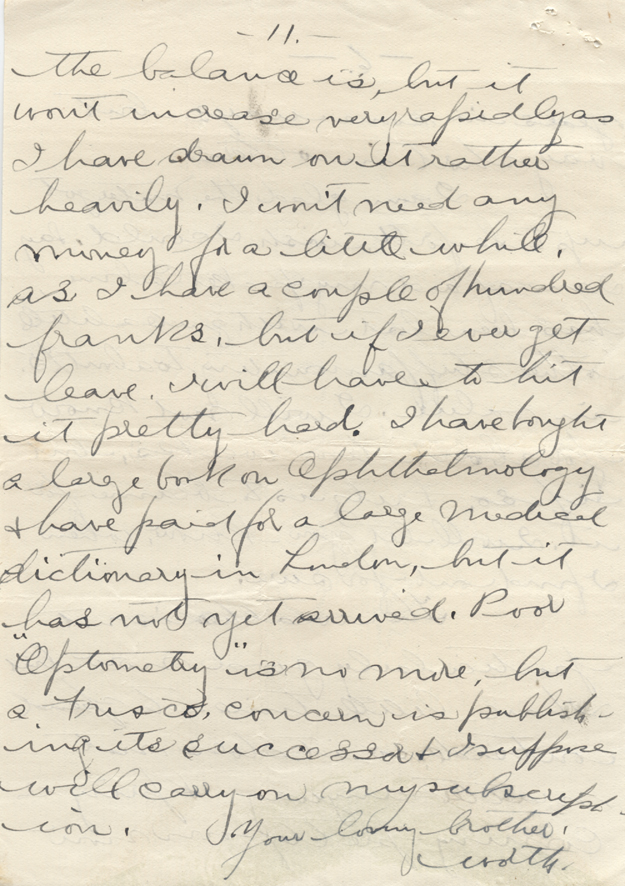 -11.-
the balance is, but it
won't increase very rapidly as
I have drawn on it rather
heavily. I won't need any
money for a little while,
as I have a couple of hundred
franks, but if I ever get
leave, I will have to hit
it pretty hard. I have bought
a large book on Ophthalmology
& have paid for a large Medical
dictionary in London, but it
has not yet arrived. Poor
"Optometry" is no more, but
a Frisco, concern is publish-
ing its successor & I suppose
will carry on my subscript-
ion. Your loving brother,
Worth.